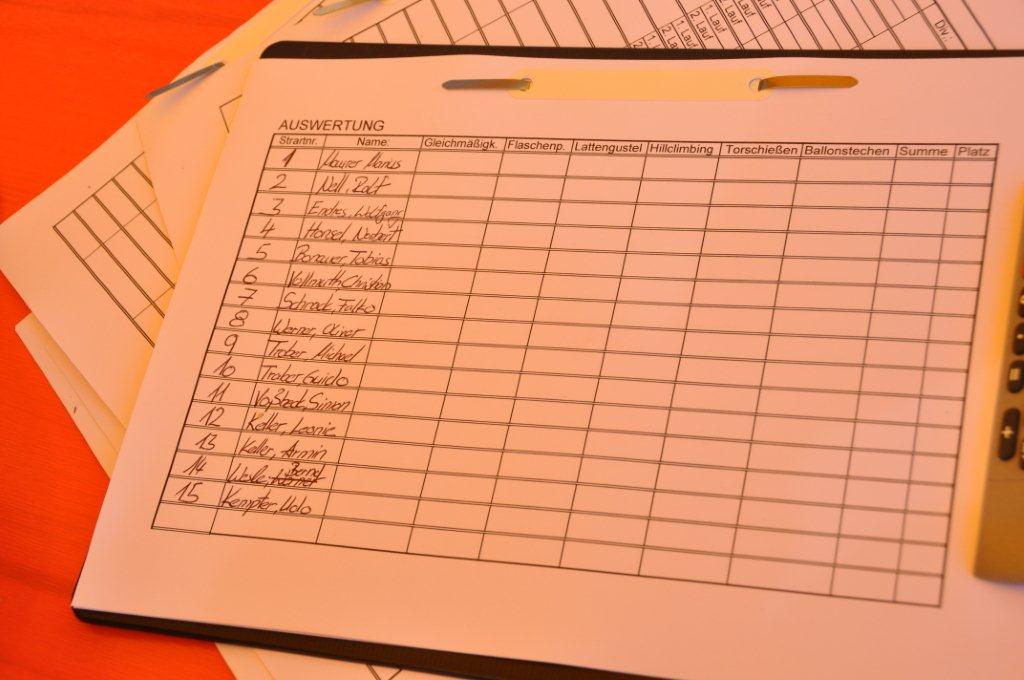 1. Lauf
2. Lauf
1. Lauf
2. Lauf
Div.:
AUSWERTUNG
Strartnr. Name: Gleichmäßigk. Flaschenp. Lattengustel Hillclimbing Torschießen Ballonstechen Summe Platz
1 Maurer Marius
2 Nell, Rolf
3 Endres, Wolfgang
4 Honsel, Norbert
5 Tobias
6 Vollmuth, Christian
7 Schrock, Falko
8 Werner, Oliver
9 Traber, Michael
10 Traber, Guido
11 Simon
12 Keller, Leonie
13 Keller, Armin
14 Bernd
15 Kempter, Udo